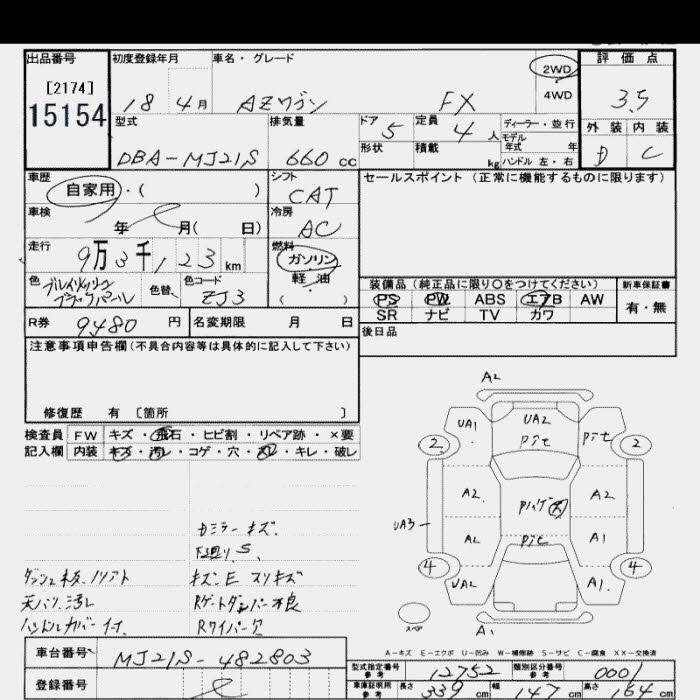 出品番号 初度登録年月 車名・グレード 2WD 評価点
[2174] 18 4月 AZワゴン FX 4WD 3.5
15154 型式 排気量 ドア 5 定員 4人 ディーラー・並行 外装 内装
DBA-MJ21S 660cc 形状 積載 kg モデル年式 年 ハンドル 左・右 D C
車歴 自家用・( ) シフト CAT セールスポイント (正常に機能するものに限ります)
車検 年 月( 日) 冷房 AC
走行 9万3千123km 燃料 ガソリン・軽油 ( )
色 色替 色コード ZJ3
ブラックパール
装備品 (純正品に限り○をつけてください) 新車保証書
PS PW ABS エアB AW 有・無
SR ナビ TV カワ
R券 9480円 名変期限 月 日 後日品
注意事項申告欄(不具合内容等は具体的に記入して下さい)
修復歴 有 [箇所 ]
検査員 FW キズ・飛石・ヒビ割・リペア跡・×要
記入欄 内装 キズ・汚レ・コゲ・穴・スレ・キレ・破レ
A2
UA1 UA2 pit pit
2 2
A2 A2
UA3
A2 pit A1
4 4
UA2 A1
スペア
A1
Dミラーキズ.
下廻りS.
キズ・E スリキズ
天バリ汚レ Rゲートダンパー不良
ハンドルカバー付 Rワイパー欠
A-キズ E-エクボ U-凹み W-補修跡 S-サビ C-腐食 XX-交換済
車台番号 MJ21S-482803
型式指定番号 参考 12752 類別区分番号 参考 0001
登録番号
車庫証明用 参考 長さ 339cm 幅 147cm 高さ 164cm